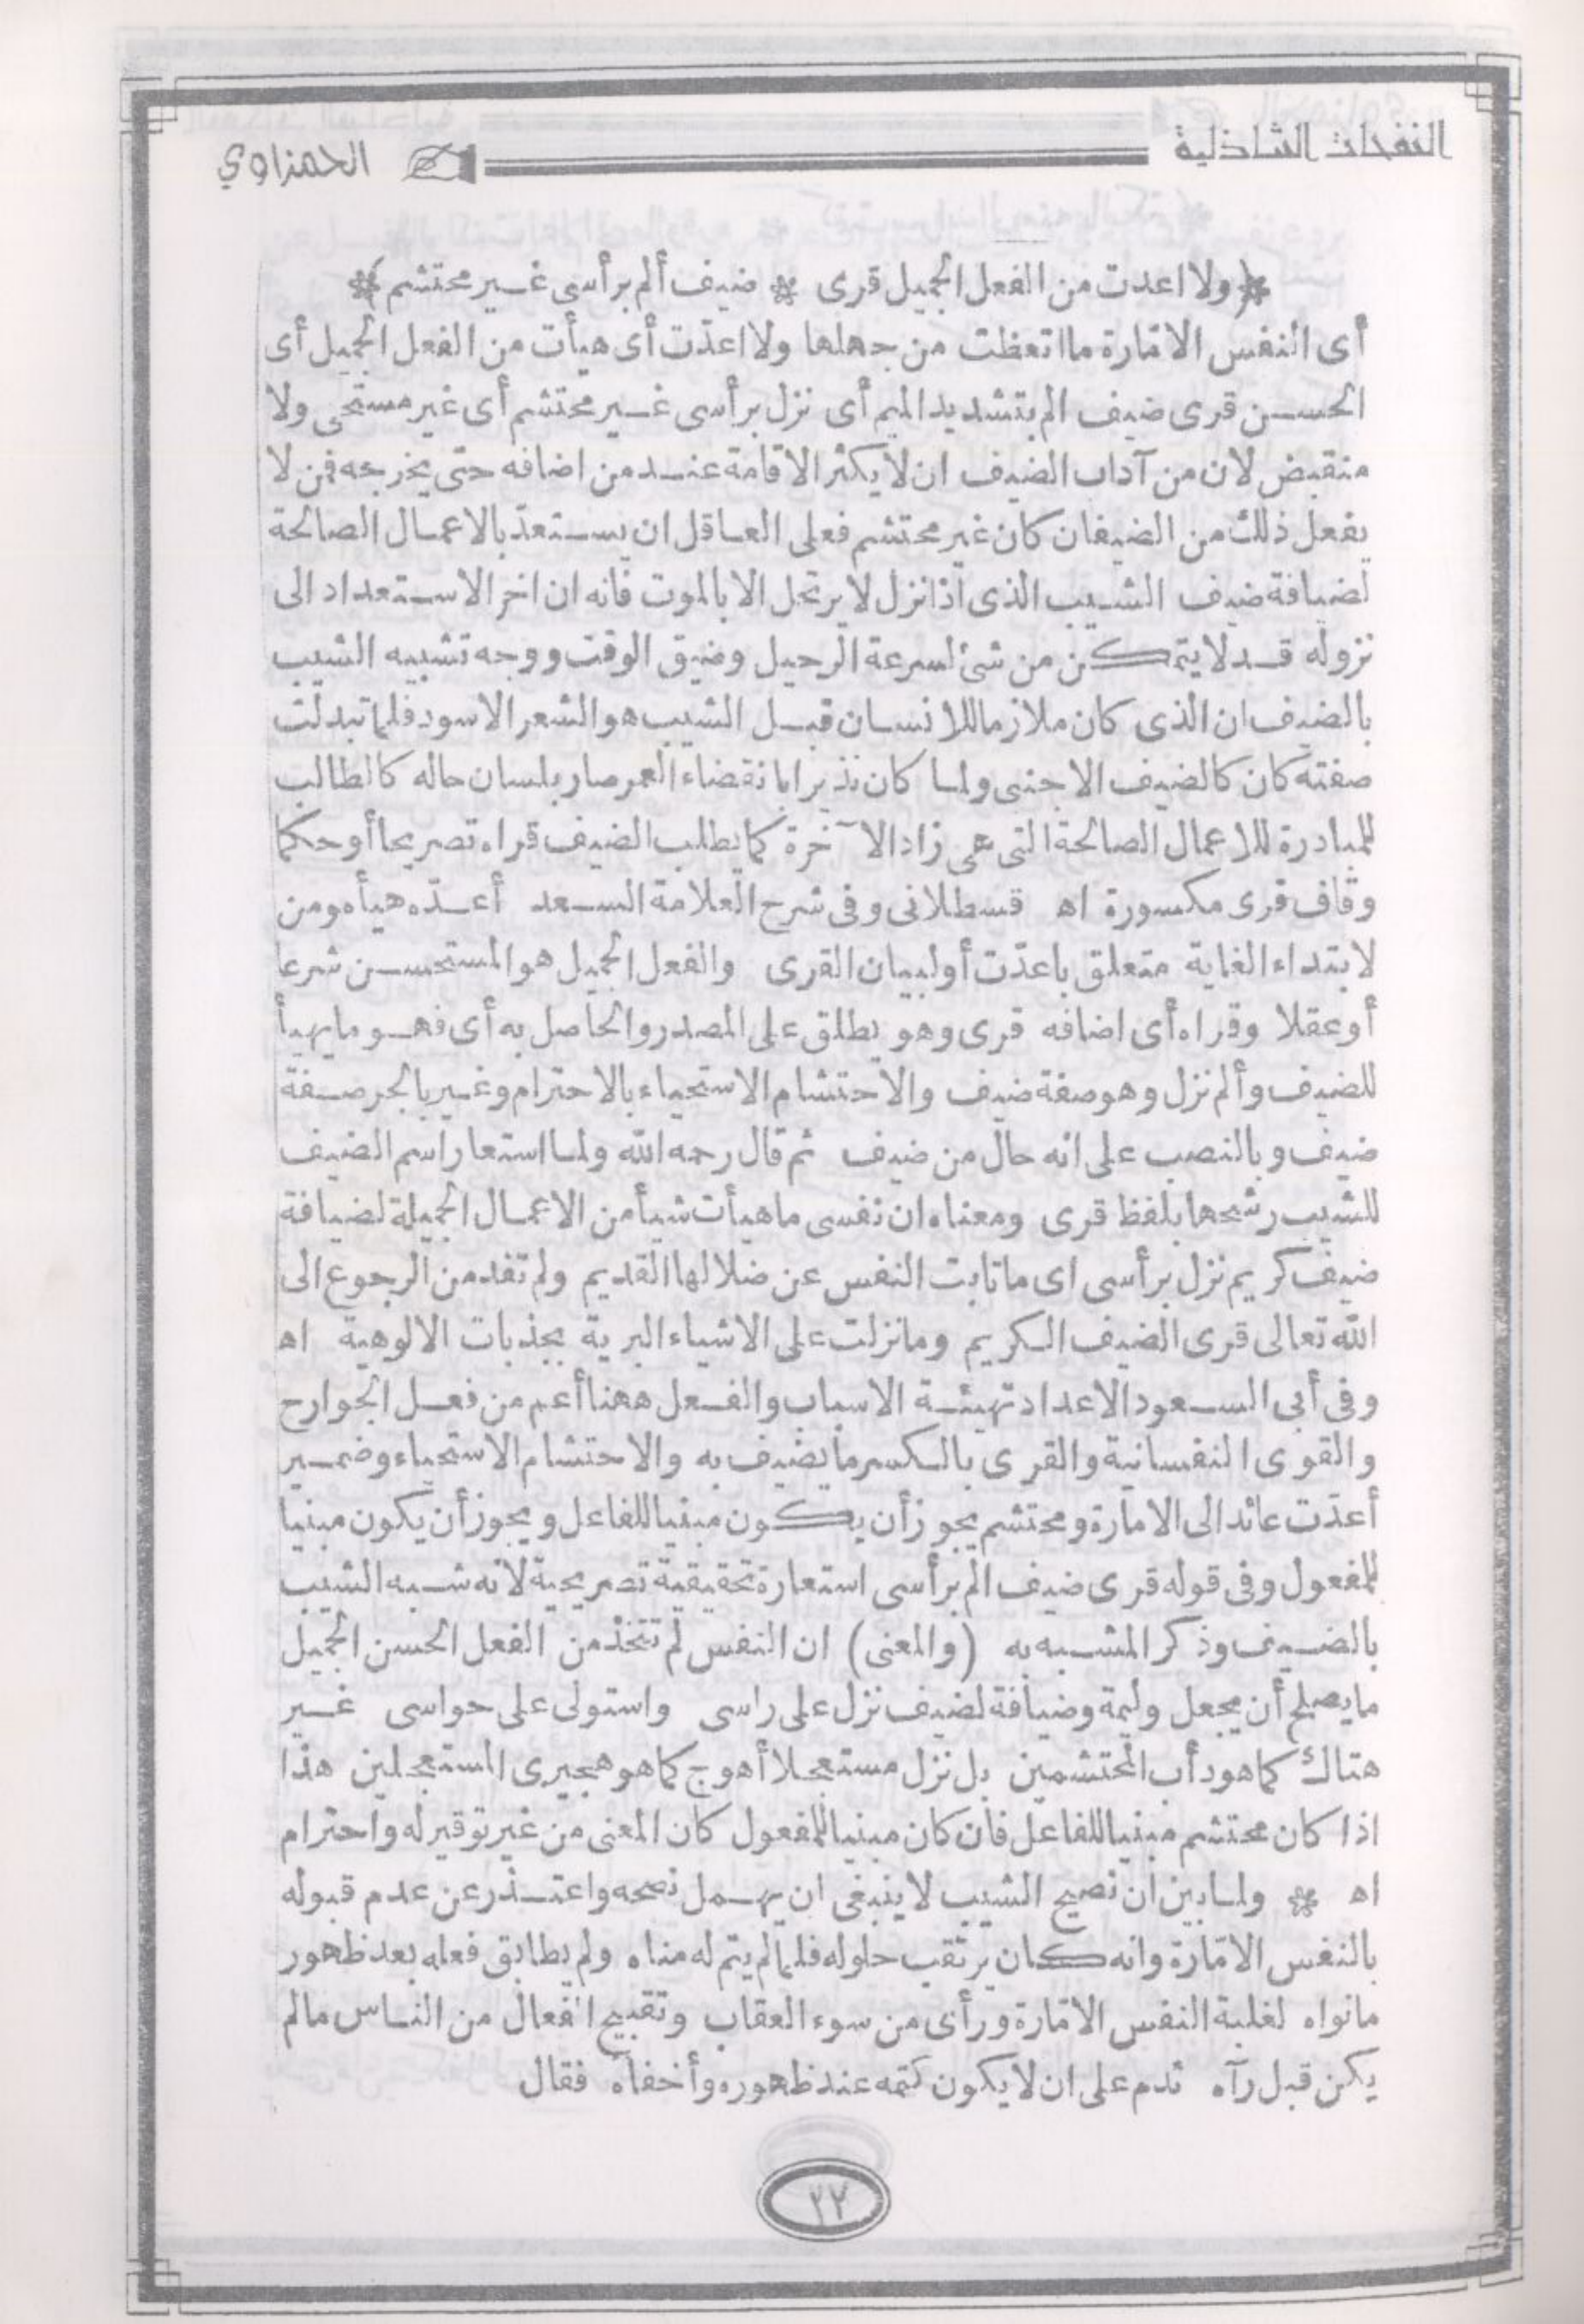 النفحات الشاذلية
الحمزاوي
﴿ ولا اعدت من الفعل الجميل قرى * ضيف ألم برأسى غير محتشم ﴾
أى النفس الامّارة ما اتعظت من جهلها ولا اعدّت أى هيأت من الفعل الجميل أى
الحسن قرى ضيف الم بتشديد الميم أى نزل برأسى غير محتشم أى غير مستحى ولا
منقبض لان من آداب الضيف ان لا يكثر الاقامة عند من اضافه حتى يخرجه فمن لا
يفعل ذلك من الضيفان كان غير محتشم فعلى العاقل ان يستعدّ بالاعمال الصالحة
لضيافة ضيف الشيب الذى اذا نزل لا يرتحل الا بالموت فانه ان اخر الاستعداد الى
نزوله قد لا يتمكن من شئ لسرعة الرحيل وضيق الوقت ووجه تشبيه الشيب
بالضيف ان الذى كان ملازما للانسان قبل الشيب هو الشعر الاسود فلما تبدلت
صفته كان كالضيف الاجنبى ولما كان نذيرا بانقضاء العمر صار بلسان حاله كالطالب
للمبادرة للاعمال الصالحة التى هى زاد الآخرة كما يطلب الضيف قراه تصريحا أو حكما
وقاف قرى مكسورة اه قسطلانى وفى شرح العلامة السعد أعدّه هيأه ومن
لابتداء الغاية متعلق باعدّت أو لبيان القرى والفعل الجميل هو المستحسن شرعا
أو عقلا وقراه أى اضافه قرى وهو يطلق على المصدر والحاصل به أى فهو ما يهيأ
للضيف وألم نزل وهو صفة ضيف والاحتشام الاستحياء بالاحترام وغير بالجر صفة
ضيف وبالنصب على انه حال من ضيف ثم قال رحمه الله ولما استعار اسم الضيف
للشيب رشحها بلفظ قرى ومعناه ان نفسى ما هيأت شيأ من الاعمال الجميلة لضيافة
ضيف كريم نزل برأسى اى ما تابت النفس عن ضلالها القديم ولم تفد من الرجوع الى
الله تعالى قرى الضيف الكريم وما نزلت على الاشياء البرية بجذبات الالوهية اه
وفى أبى السعود الاعداد تهيئة الاسباب والفعل ههنا أعم من فعل الجوارح
والقوى النفسانية والقرى بالكسر ما يضيف به والاحتشام الاستحياء وضمير
أعدّت عائد الى الامارة ومحتشم يجوز أن يكون مبنيا للفاعل ويجوز أن يكون مبنيا
للمفعول وفى قوله قرى ضيف الم برأسى استعارة تحقيقية تصريحية لانه شبه الشيب
بالضيف وذكر المشبه به (والمعنى) ان النفس لم تتخذ من الفعل الحسن الجميل
ما يصلح أن يجعل وليمة وضيافة لضيف نزل على راسى واستولى على حواسى غير
هتاك كما هو دأب المحتشمين بل نزل مستعجلا أهوج كما هو هجيرى المستعجلين هذا
اذا كان محتشم مبنيا للفاعل فان كان مبنيا للمفعول كان المعنى من غير توقير له واحترام
اه * ولما بين ان نصيح الشيب لا ينبغى ان يهمل نصحه واعتذر عن عدم قبوله
بالنفس الامّارة وانه كان يرتقب حلوله فلما لم يتم له مناه ولم يطابق فعله بعد ظهور
مانواه لغلبة النفس الامّارة ورأى من سوء العقاب وتقبيح الفعال من الناس ما لم
يكن قبل رآه ندم على ان لا يكون كتمه عند ظهوره وأخفاه فقال
٢٢